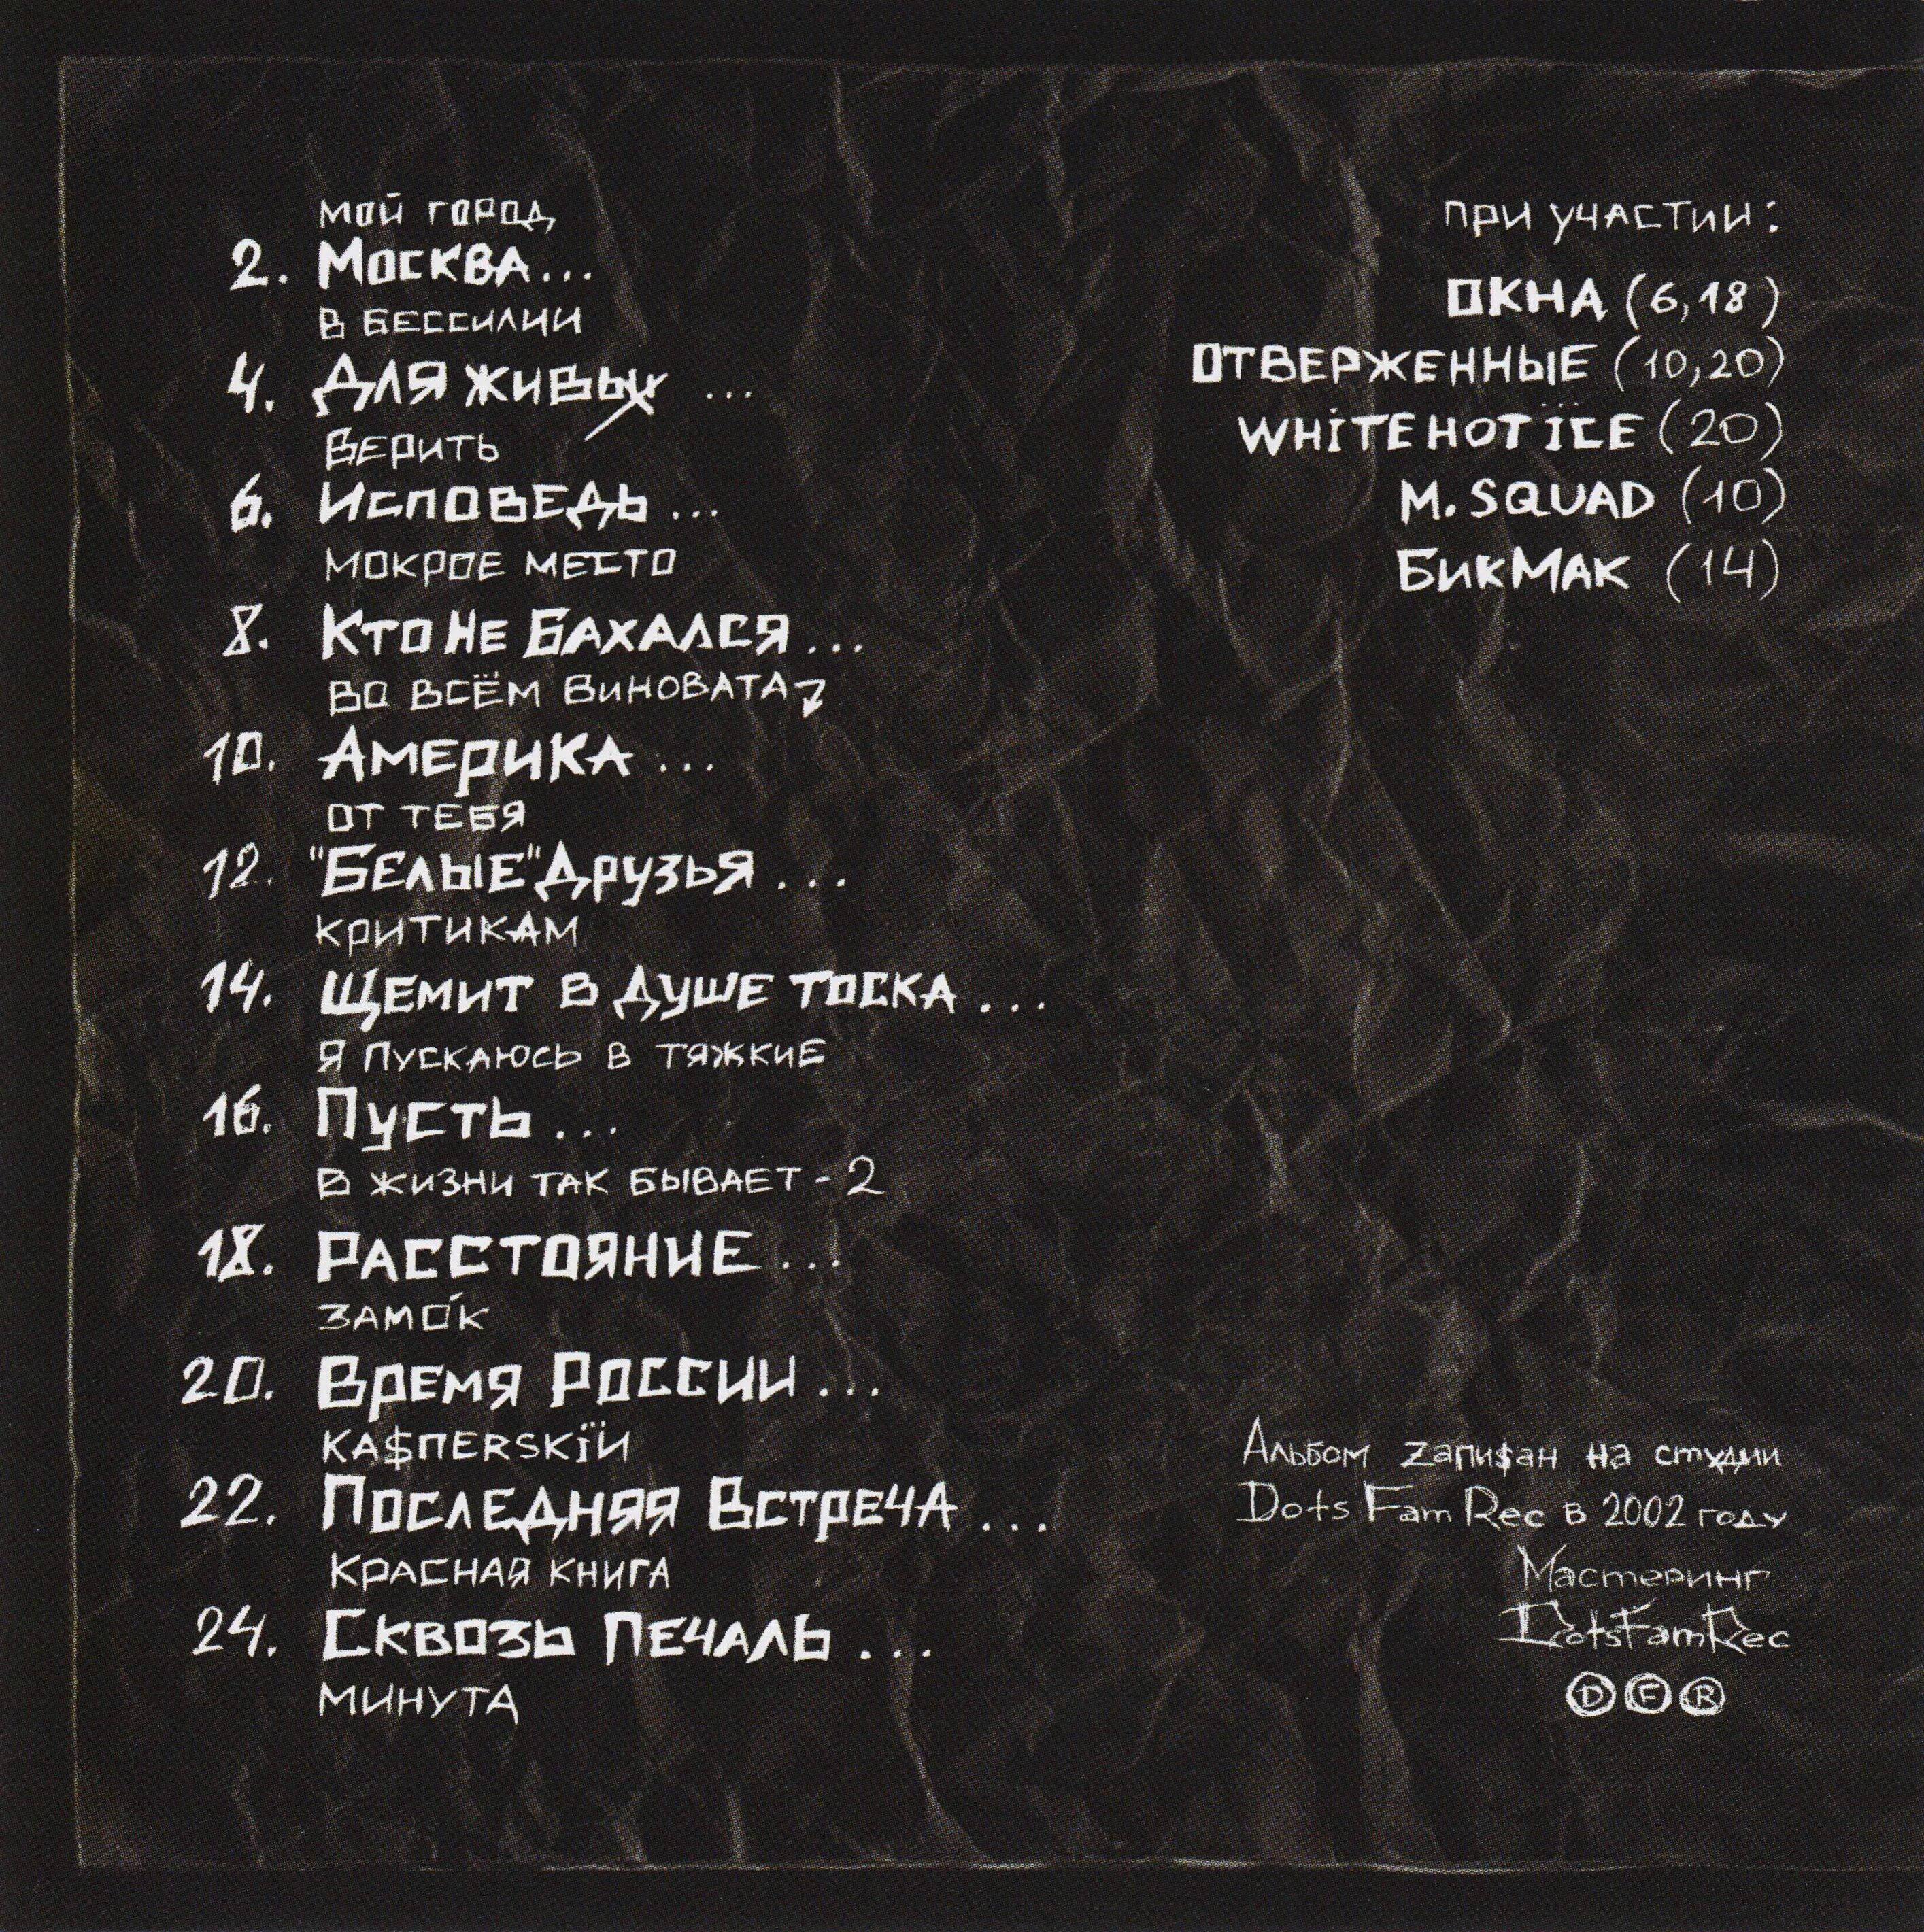 мой город
2. Москва...
в бессилии
4. Для живых ...
верить
6. Исповедь...
мокрое место
8. Кто Не Бахался...
во всём виновата
10. Америка...
от тебя
12. "Белые" Друзья...
критикам
14. Щемит в душе тоска...
я пускаюсь в тяжкие
16. Пусть...
в жизни так бывает - 2
18. Расстояние...
замо́к
20. Время России...
KA$ПERSKiЙ
22. Последняя Встреча...
красная книга
24. Сквозь печаль...
минута
при участии:
ОКНА (6,18)
ОТВЕРЖЕННЫЕ (10,20)
WHiTE HOT ÏCE (20)
M. SQUAD (10)
БикМак (14)
Альбом Zапи$ан на студии
Dots Fam Rec в 2002 году
Мастеринг
DotsFamRec
D F R